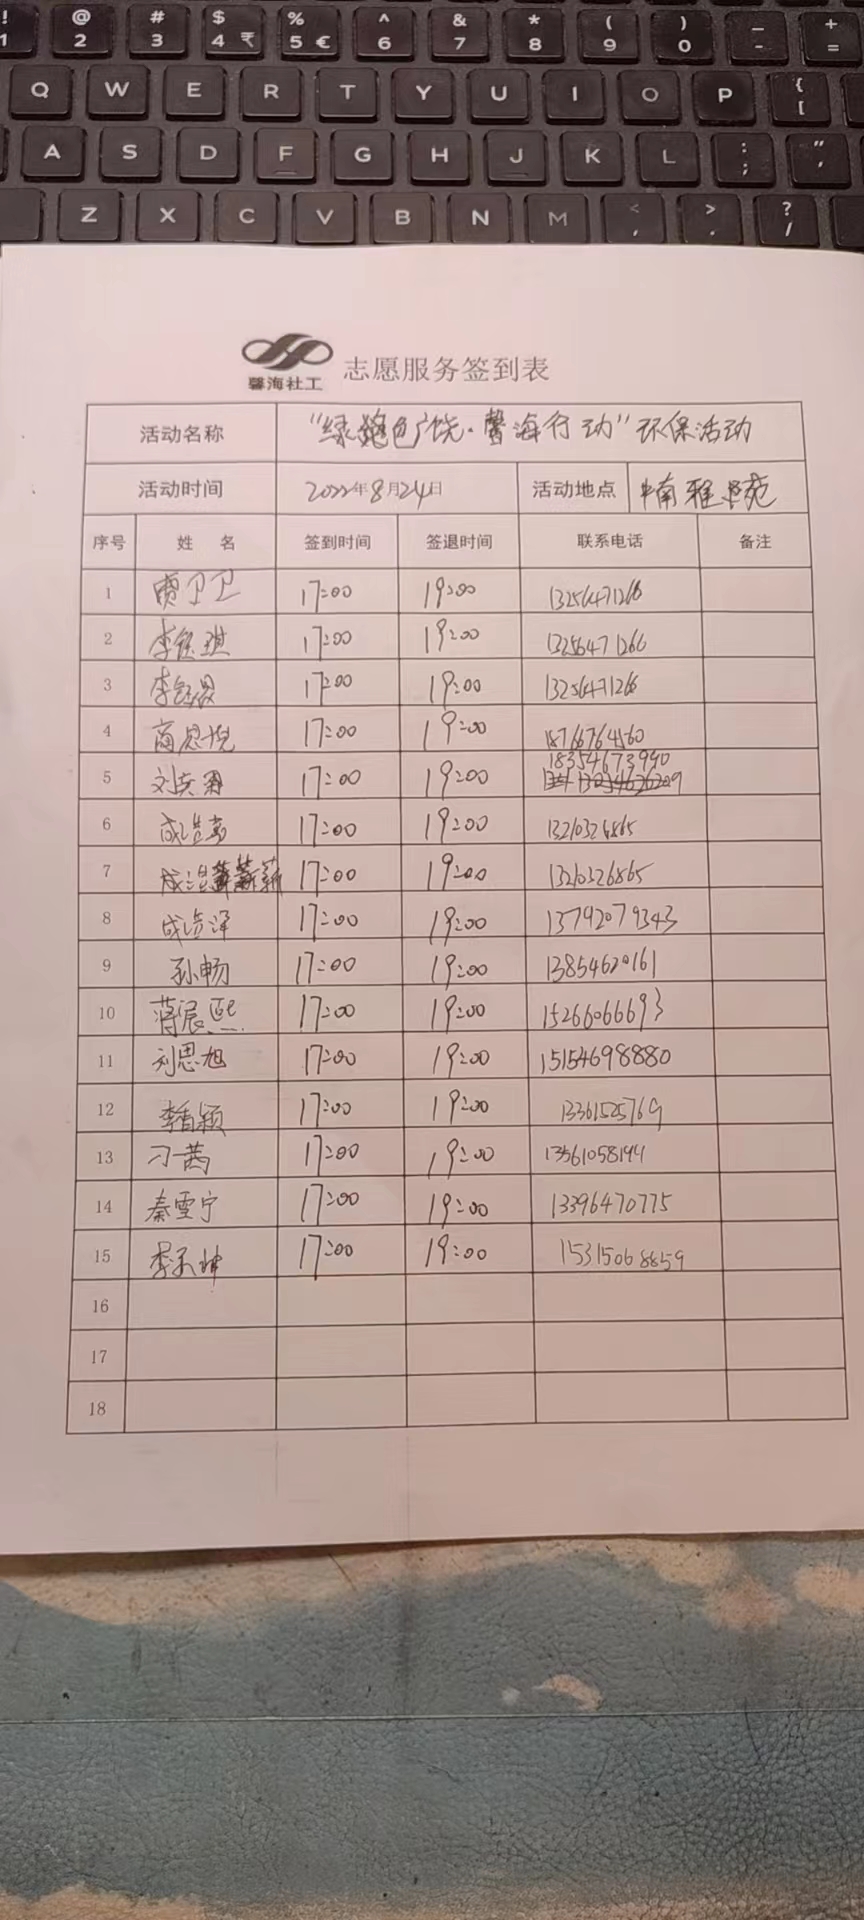 ! @ # $ % ^ & * ( ) _ +
1 2 3 4 ₹ 5 € 6 7 8 9 0 - =
Q W E R T Y U I O P { [
A S D F G H J K L : ; " '
Z X C V B N M < , > . ? /
馨海社工 志愿服务签到表
活动名称 "绿色广饶·馨海行动"环保活动
活动时间 2022年8月24日 活动地点 南雅
序号 姓 名 签到时间 签退时间 联系电话 备注
1 贾卫卫 17:00 19:00 13256471266
2 李钰琪 17:00 19:00 13256471266
3 李 17:00 19:00 13256471266
4 商思悦 17:00 19:00 18766764560
5 17:00 19:00 18354673990
6 成 17:00 19:00 13210326865
7 成 薪 17:00 19:00 13210326865
8 成浩泽 17:00 19:00 13792079343
9 孙畅 17:00 19:00 13854620161
10 蒋展熙 17:00 19:00 15266066693
11 刘思旭 17:00 19:00 15154698880
12 李 颖 17:00 19:00 13361525769
13 刁茜 17:00 19:00 13561058144
14 秦雪宁 17:00 19:00 13396470775
15 李 坤 17:00 19:00 15315068859
16
17
18